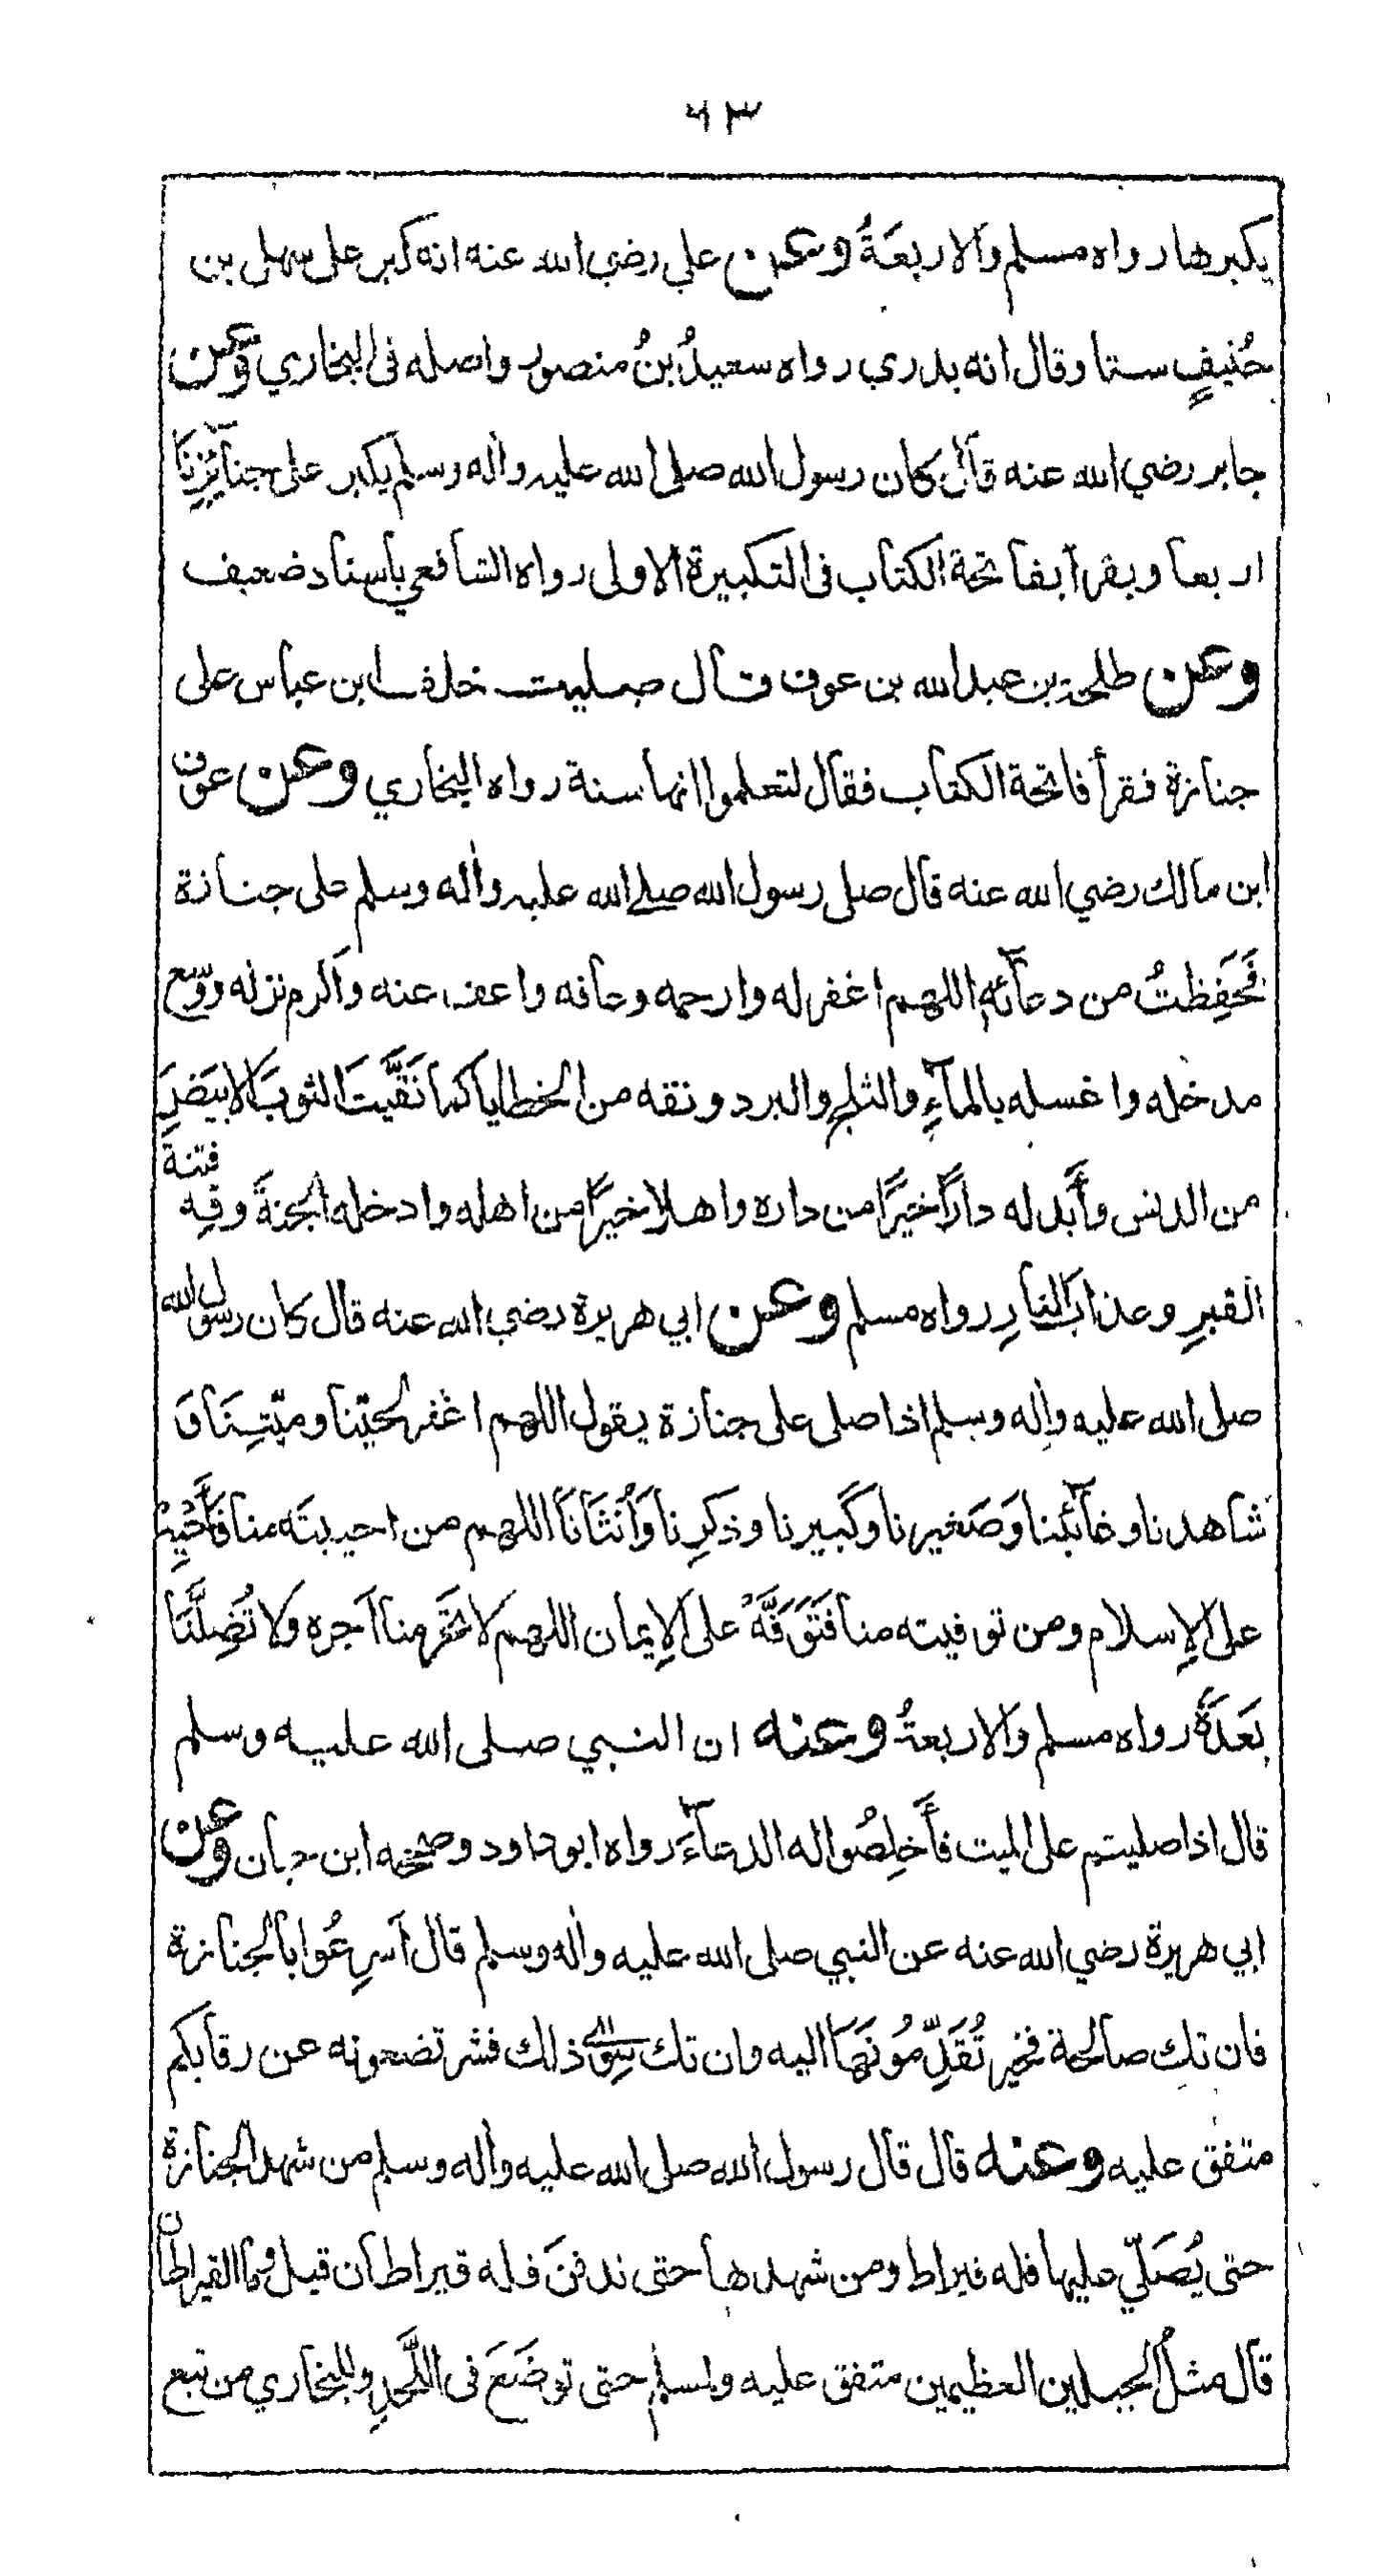 ٦٣
يكبرها رواه مسلم والاربعَةُ وعن علي رضي الله عنه انه كبر على سهل بن
حُنيفٍ ستا وقال انه بدري رواه سعيدُ بنُ منصور واصله في البخاري وعن
جابر رضي الله عنه قال كان رسول الله صلى الله عليه واٰله وسلم يكبر على جنآئزِنَا
اربعا ويقرأ بفاتحة الكتاب في التكبيرة الاولى رواه الشافعي باسناد ضعيف
وعن طلحة بن عبد الله بن عوف قال صليت خلف ابن عباس على
جنازة فقرأ فاتحة الكتاب فقال لتعلموا انها سنة رواه البخاري وعن عوف
ابن مالك رضي الله عنه قال صلى رسول الله صلے الله عليه واٰله وسلم على جنازة
فَحَفِظتُ من دعآئهِ اللهم اغفر له وارحمه وعافه واعف عنه واَكرم نزله ووسّع
مدخله واغسله بالمآءِ والثلجِ والبرد ونقه من الخطايا كما نَقَّيتَ الثوبَ الابيَضَ
من الدنس وأَبدله دارًا خيرًا من داره واهلا خيرًا من اهله وادخله الجنةَ وقِهِ فتنةَ
القبرِ وعذابَ النارِ رواه مسلم وعن ابي هريرة رضي الله عنه قال كان رسول الله
صلى الله عليه واٰله وسلم اذا صلى على جنازة يقول اللهم اغفر لحيّنا وميّتِنَا وَ
شاهدنا وغآئبنا وَصَغيرنا وكَبيرنا وذكرِنا وَأُنثَانَا اللهم من احييتَه منا فَأَحْيِهْ
على الاِسلام ومن توفيته منا فَتَوَفَّهْ على الاِيمان اللهم لا تَحَرِمنا اَجره ولا تُضِلَّنَا
بَعدَهُ رواه مسلم والاربعةُ وعنه ان النبي صلى الله عليه وسلم
قال اذا صليتم على الميت فأَخلِصُوا له الدعآءَ رواه ابو داود وصححه ابن حبان وعن
ابي هريرة رضي الله عنه عن النبي صلى الله عليه واٰله وسلم قال اَسرِعُوا بالجنازة
فان تك صالحة فخير تُقَدِّمُونَهَا اليه وان تك سِوٰى ذلك فشر تضعونه عن رقابكم
متفق عليه وعنه قال قال رسول الله صلى الله عليه واٰله وسلم من شهد الجنازة
حتى يُصَلّي عليها فله قيراط ومن شهدها حتى تدفنَ فله قيراطان قيل وما القيراطان
قال مثلُ الجبلين العظيمين متفق عليه ولمسلم حتى توضَعَ في اللَّحدِ وللبخاري من تبع